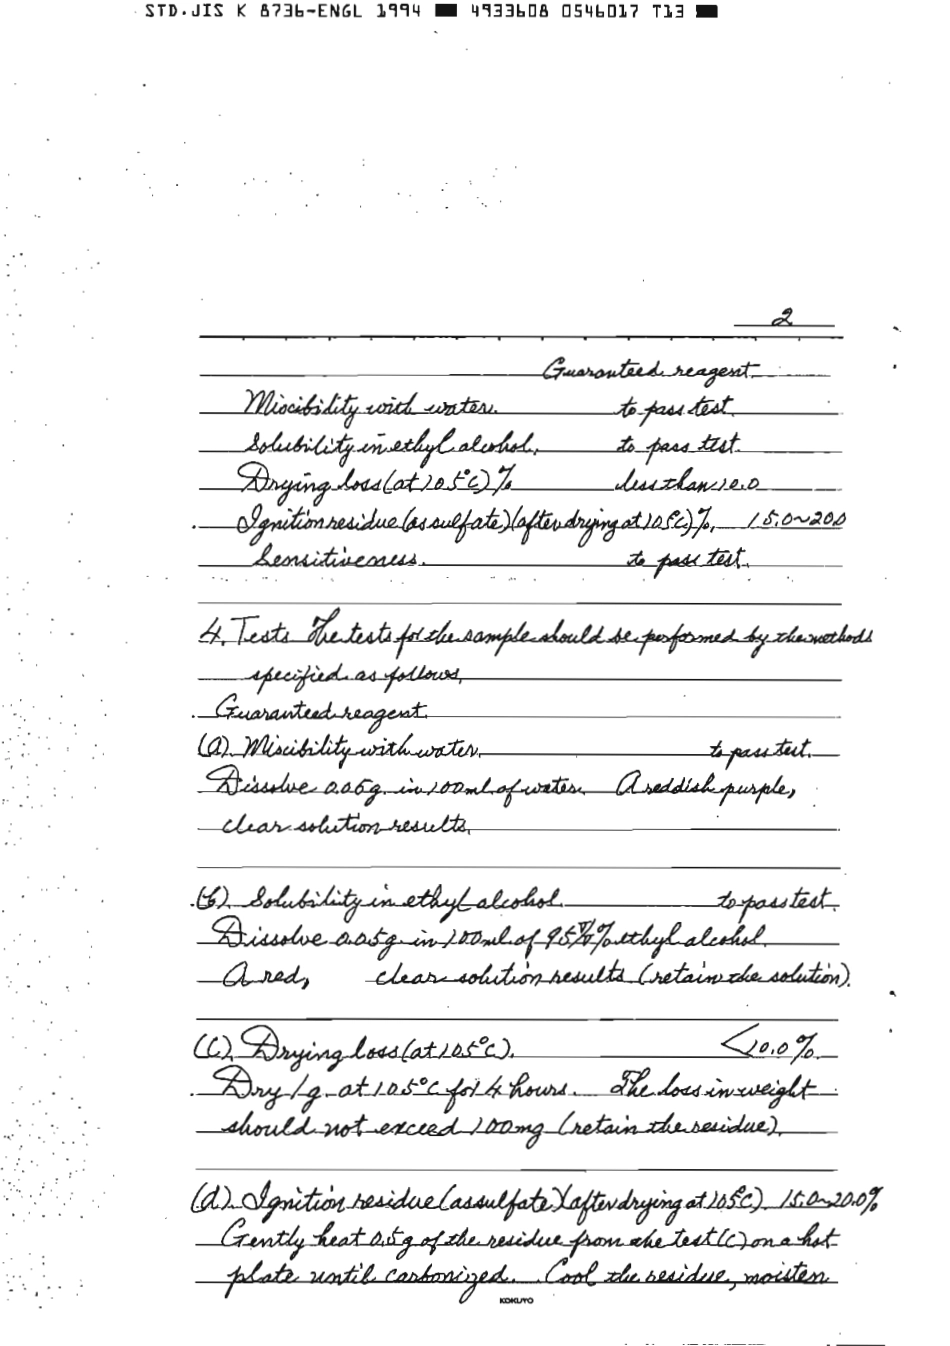 STD.JIS K 8736-ENGL 1994 ■ 4933608 0546017 T13 ■
2
Guaranteed reagent
Miscibility with water. to pass test.
Solubility in ethyl alcohol. to pass test.
Drying loss (at 105°C) % less than 10.0
Ignition residue (as sulfate) (after drying at 105°C) %. 15.0~20.0
Sensitiveness. to pass test.
4. Tests The tests for the sample should be performed by the methods
specified as follows.
Guaranteed reagent.
(a). Miscibility with water. to pass test.
Dissolve 0.05g. in 100ml of water. A reddish purple,
clear solution results.
(b). Solubility in ethyl alcohol. to pass test.
Dissolve 0.05g. in 100ml of 95 V/V % ethyl alcohol.
A red, clear solution results (retain the solution).
(C). Drying loss (at 105°C). <10.0%.
Dry 1g. at 105°C for 4 hours. The loss in weight
should not exceed 100mg (retain the residue).
(d). Ignition residue (as sulfate) (after drying at 105°C). 15.0~20.0%
Gently heat 0.5g of the residue from the test (C) on a hot
plate until carbonized. Cool the residue, moisten
KOKUYO